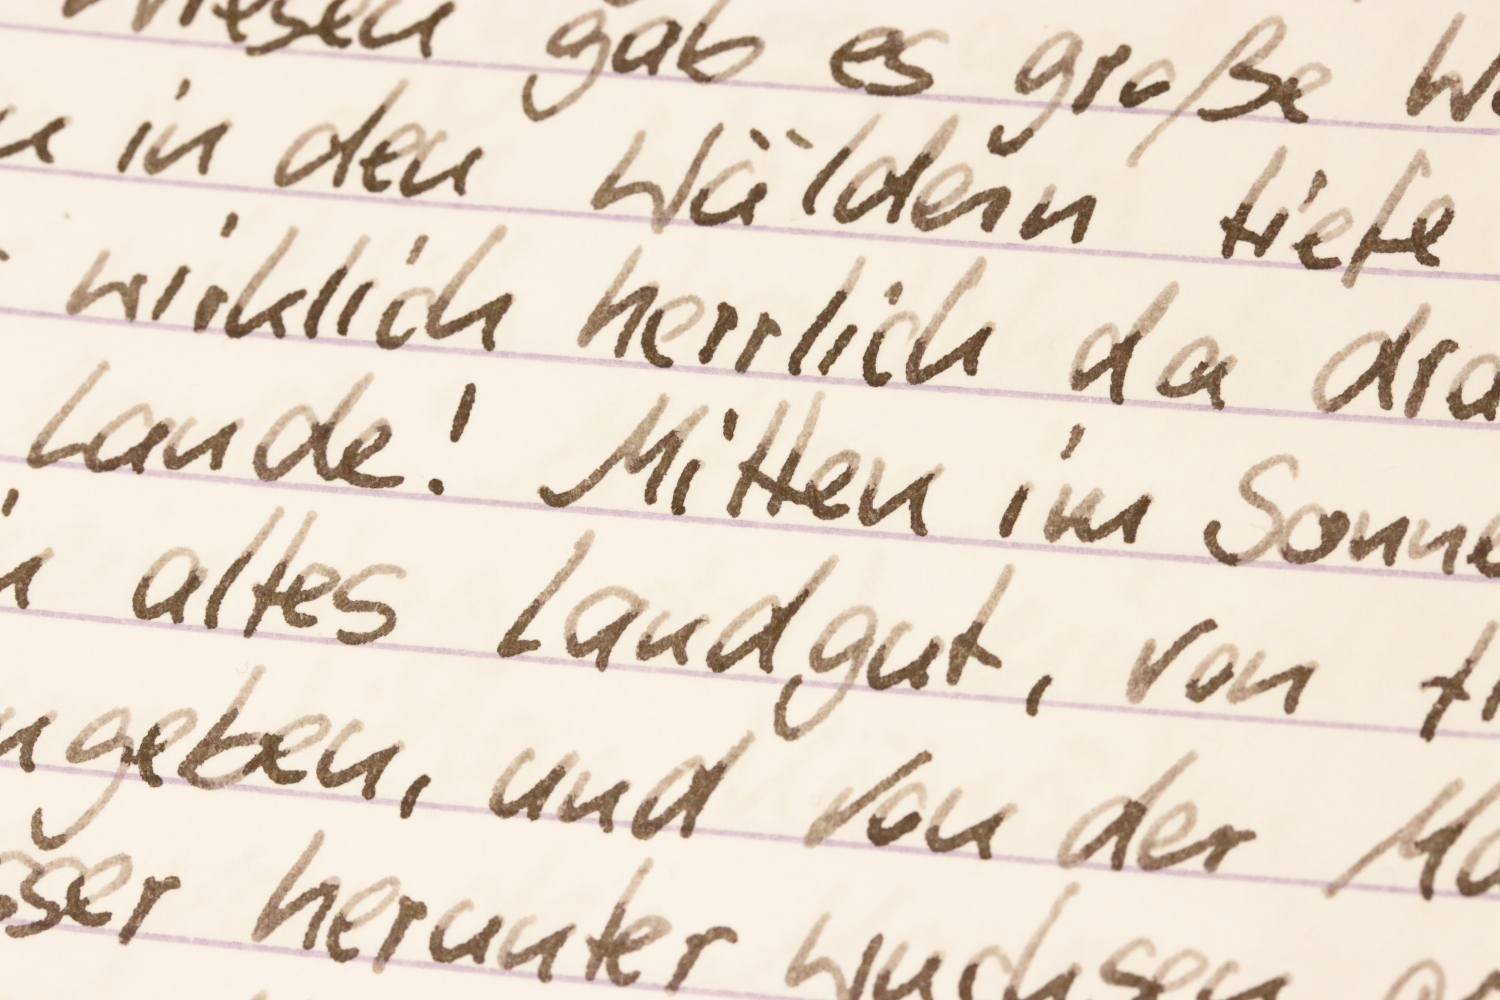 Wiesen gab es große W
n in den Wäldern tiefe
wirklich herrlich da dra
Lande! Mitten im Sonne
n altes Landgut, von ti
ngeben, und von der Ma
sser herunter wuchsen